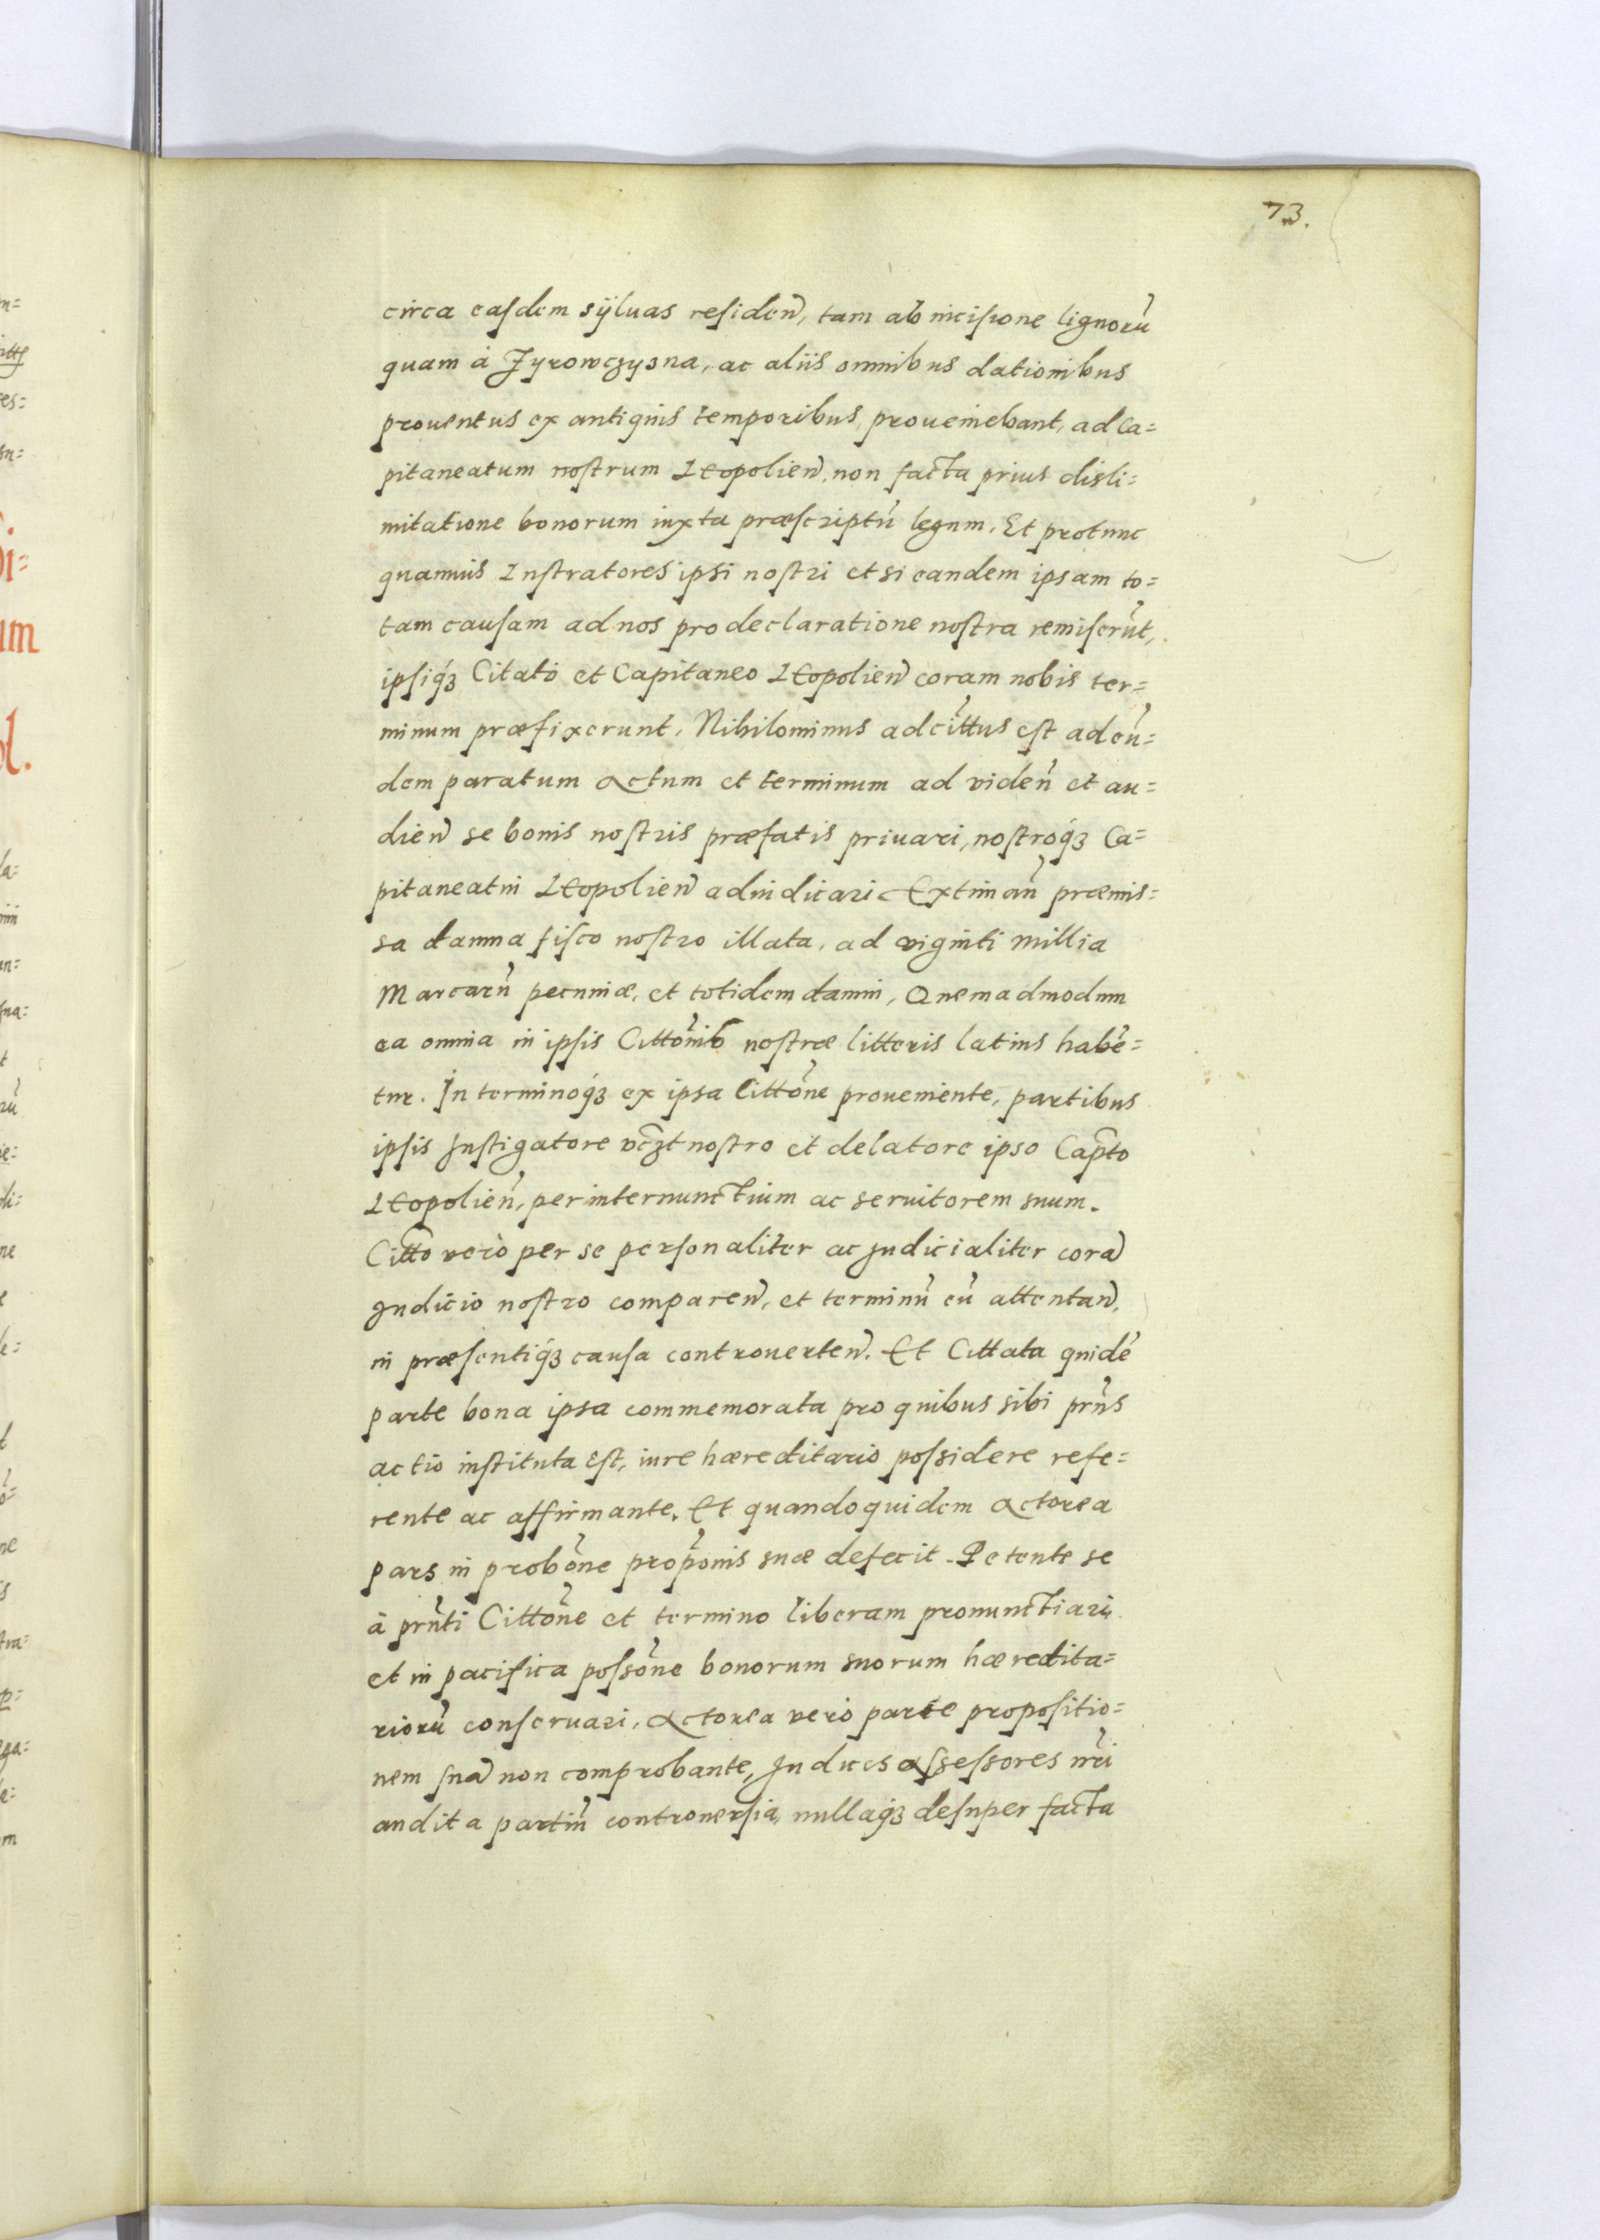 73.
circa easdem sÿluas residen̄, tam ab incisione lignorū
quam à Zyrowczyzna, ac aliis omnibus dationibus
prouentus ex antiquis temporibus, proueniebant, ad Ca=
pitaneatum nostrum Leopolien̄. non facta prius disli=
mitatione bonorum iuxta præscriptū legum. Et protunc
quamuis Lustratores ipsi nostri etsi eandem ipsam to=
tam causam ad nos pro declaratione nostra remiserūt,
ipsiqꝫ Citato et Capitaneo Leopolien̄ coram nobis ter=
minum præfixerunt. Nihilominus adcittus est ad eū=
dem paratum Actum et terminum ad viden̄ et au=
dien̄ se bonis nostris præfatis priuari, nostroqꝫ Ca=
pitaneatui Leopolien̄ adiudicari Extiman̄ præmis=
sa damna fisco nostro illata, ad viginti millia
Marcarū pecuniæ, et totidem damni, Quemadmodum
ea omnia in ipsis Cittōnib nostræ litteris latius habē=
tur. In terminoqꝫ ex ipsa Cittōne proueniente, partibus
ipsis Instigatore vcꝫt nostro et delatore ipso Capto
Leopolien̄, per internunctium ac seruitorem suum.
Citto verò per se personaliter ac Judicialiter corā
Judicio nostro comparen̄, et terminū eū attentan̄,
in præsentiqꝫ causa controuerten̄. Et Cittata quidē
parte bona ipsa commemorata pro quibus sibi prn̄s
actio instituta Est, iure hæreditario possidere refe=
rente ac affirmante. Et quandoquidem Actorea
pars in probōne propōnis suæ defecit. Petente se
à prn̄ti Cittōne et termino liberam pronunctiari
et in pacifica possōne bonorum suorum hæredita=
riorū conseruari, Actorea verò parte propositio=
nem suā non comprobante, Judices Assessores nr̄i
audita partiū controuersia, nullaqꝫ desuper facta